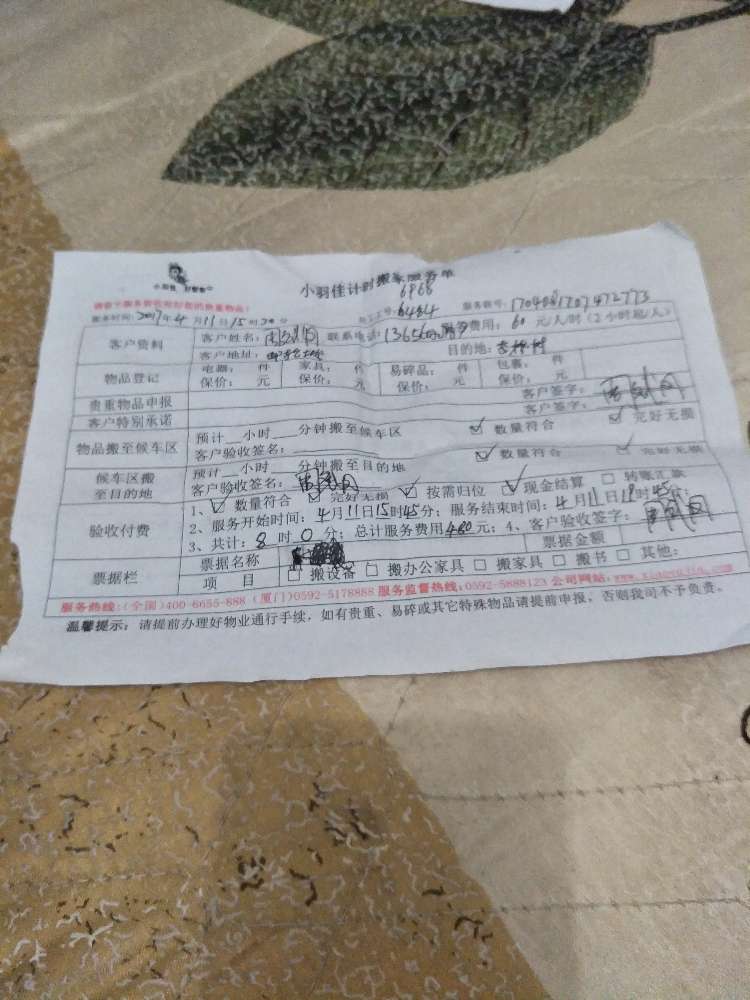 小羽佳 好管家
小羽佳计时搬家服务单
6968
服务时间：2017年4月11日15时30分 员工工号：6484 服务账号：
客户资料 客户姓名： 联系电话： 服务费用：60元/人/时（2小时起/人）
客户地址： 目的地：
物品登记 电器： 件 家具： 件 易碎品： 件 包裹： 件
保价： 元 保价： 元 保价： 元 保价： 元
贵重物品申报 客户签字：
客户特别承诺 客户签字：
物品搬至候车区 预计__小时___分钟搬至候车区 数量符合 完好无损
客户验收签名：
候车区搬至目的地 预计__小时___分钟搬至目的地 数量符合 完好无损
客户验收签名：
验收付费 1、 数量符合 完好无损 按需归位 现金结算 转账汇款
2、服务开始时间：4月11日15时45分；服务结束时间：4月11日
3、共计：8时0分；总计服务费用480元；4、客户验收签字：
票据栏 票据名称 票据金额
项 目 搬设备 搬办公家具 搬家具 搬书 其他：
服务热线：（全国）400-8655-888（厦门）0592-5178888 服务监督热线：0592-5888123 公司网站：www.xiaoyujia.com
温馨提示：请提前办理好物业通行手续，如有贵重、易碎或其它特殊物品请提前申报，否则我司不予负责。